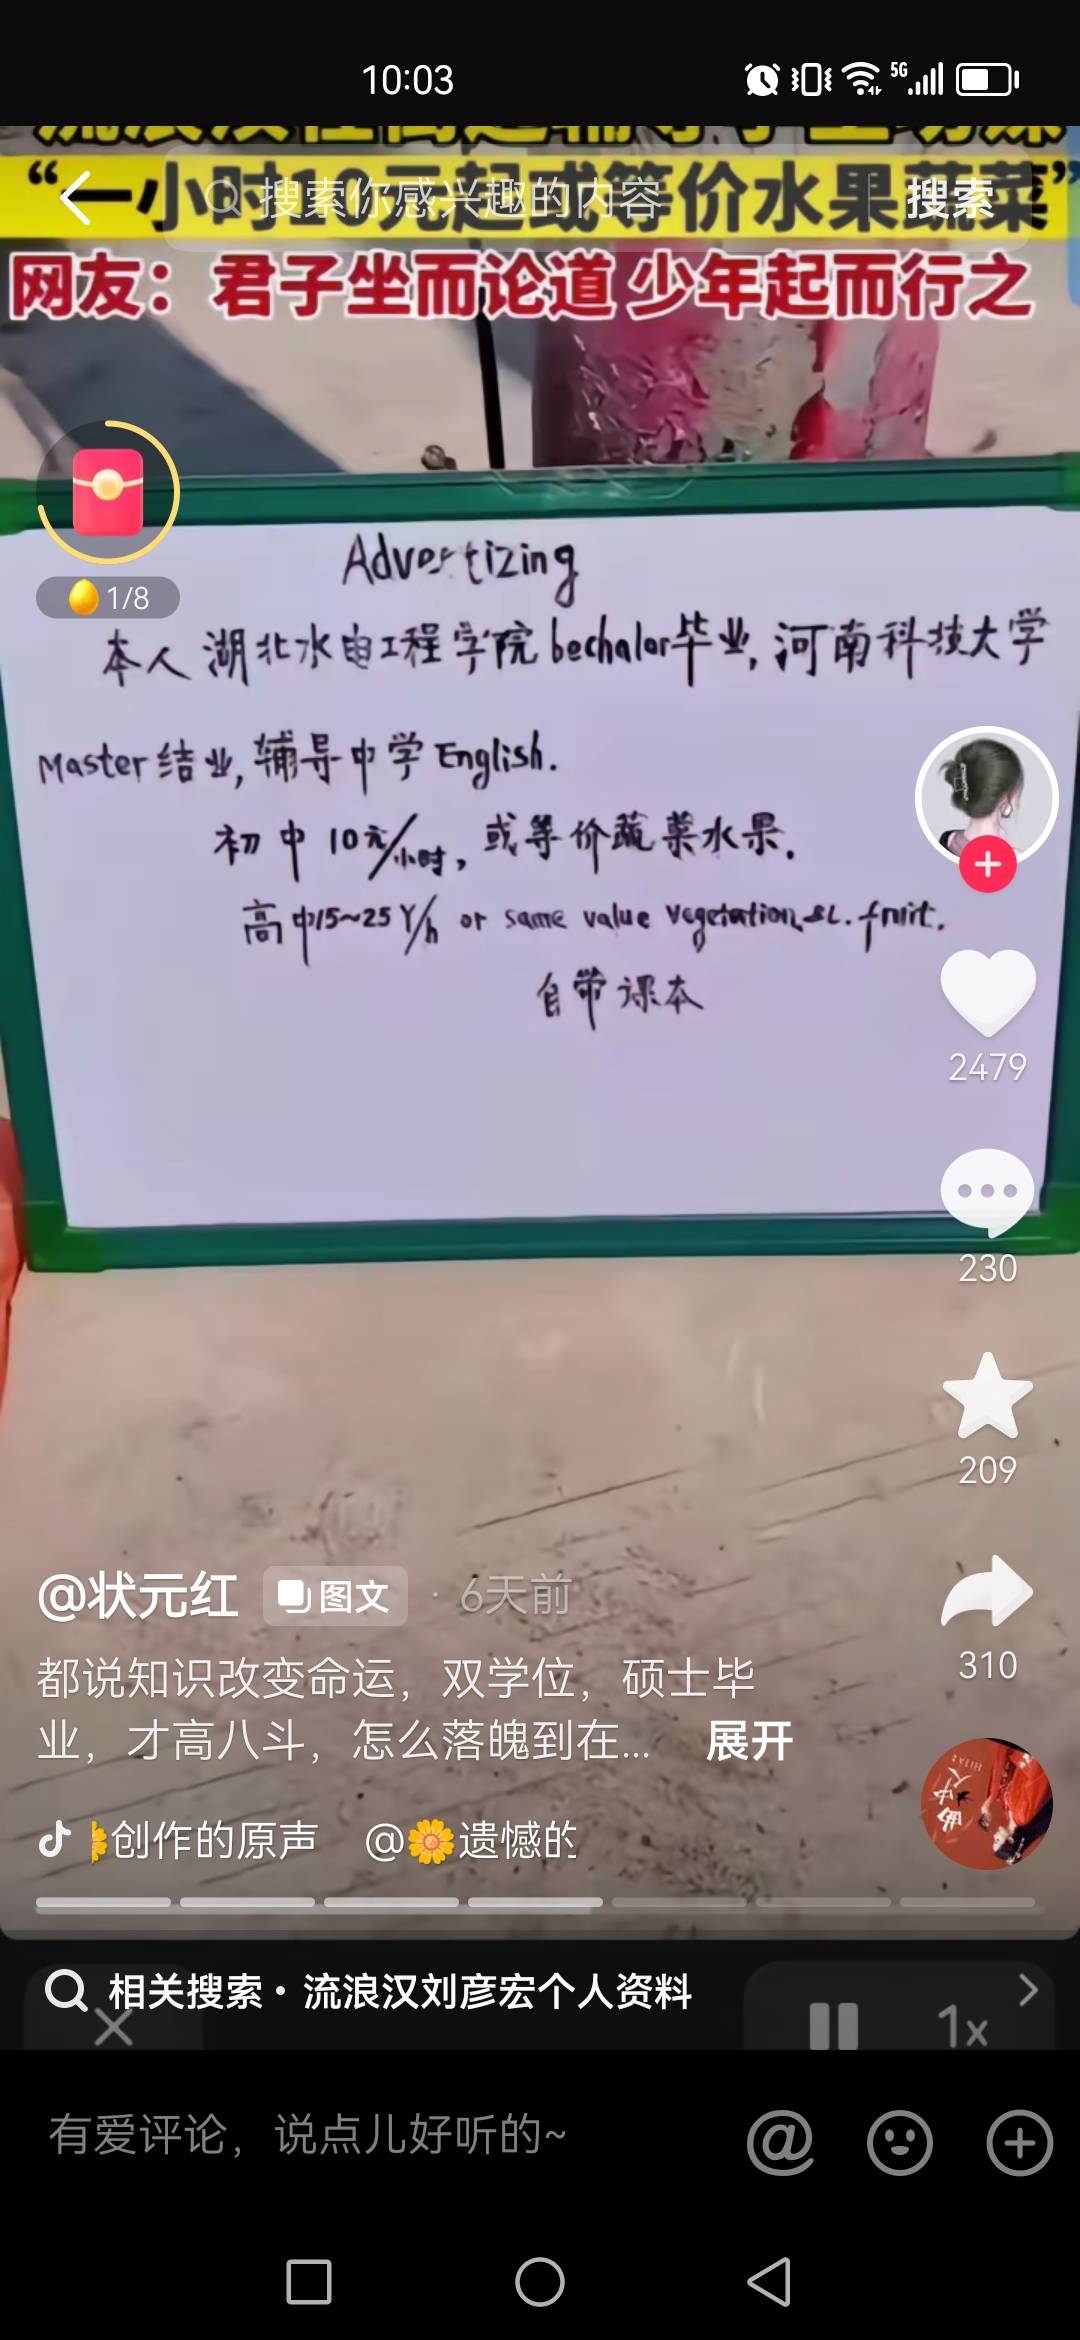 10:03
5G
“一小时10元起或等价水果蔬菜”
搜索你感兴趣的内容
搜索
网友：君子坐而论道 少年起而行之
1/8
Advertizing
本人湖北水电工程学院bechalor毕业,河南科技大学
Master结业,辅导中学English.
初中10元/小时,或等价蔬菜水果.
高中15~25Y/h or same value vegetation &. fruit.
自带课本
2479
230
209
310
@状元红 图文 · 6天前
都说知识改变命运，双学位，硕士毕
业，才高八斗，怎么落魄到在... 展开
创作的原声 @🌼遗憾的
相关搜索 · 流浪汉刘彦宏个人资料
1x
有爱评论，说点儿好听的~